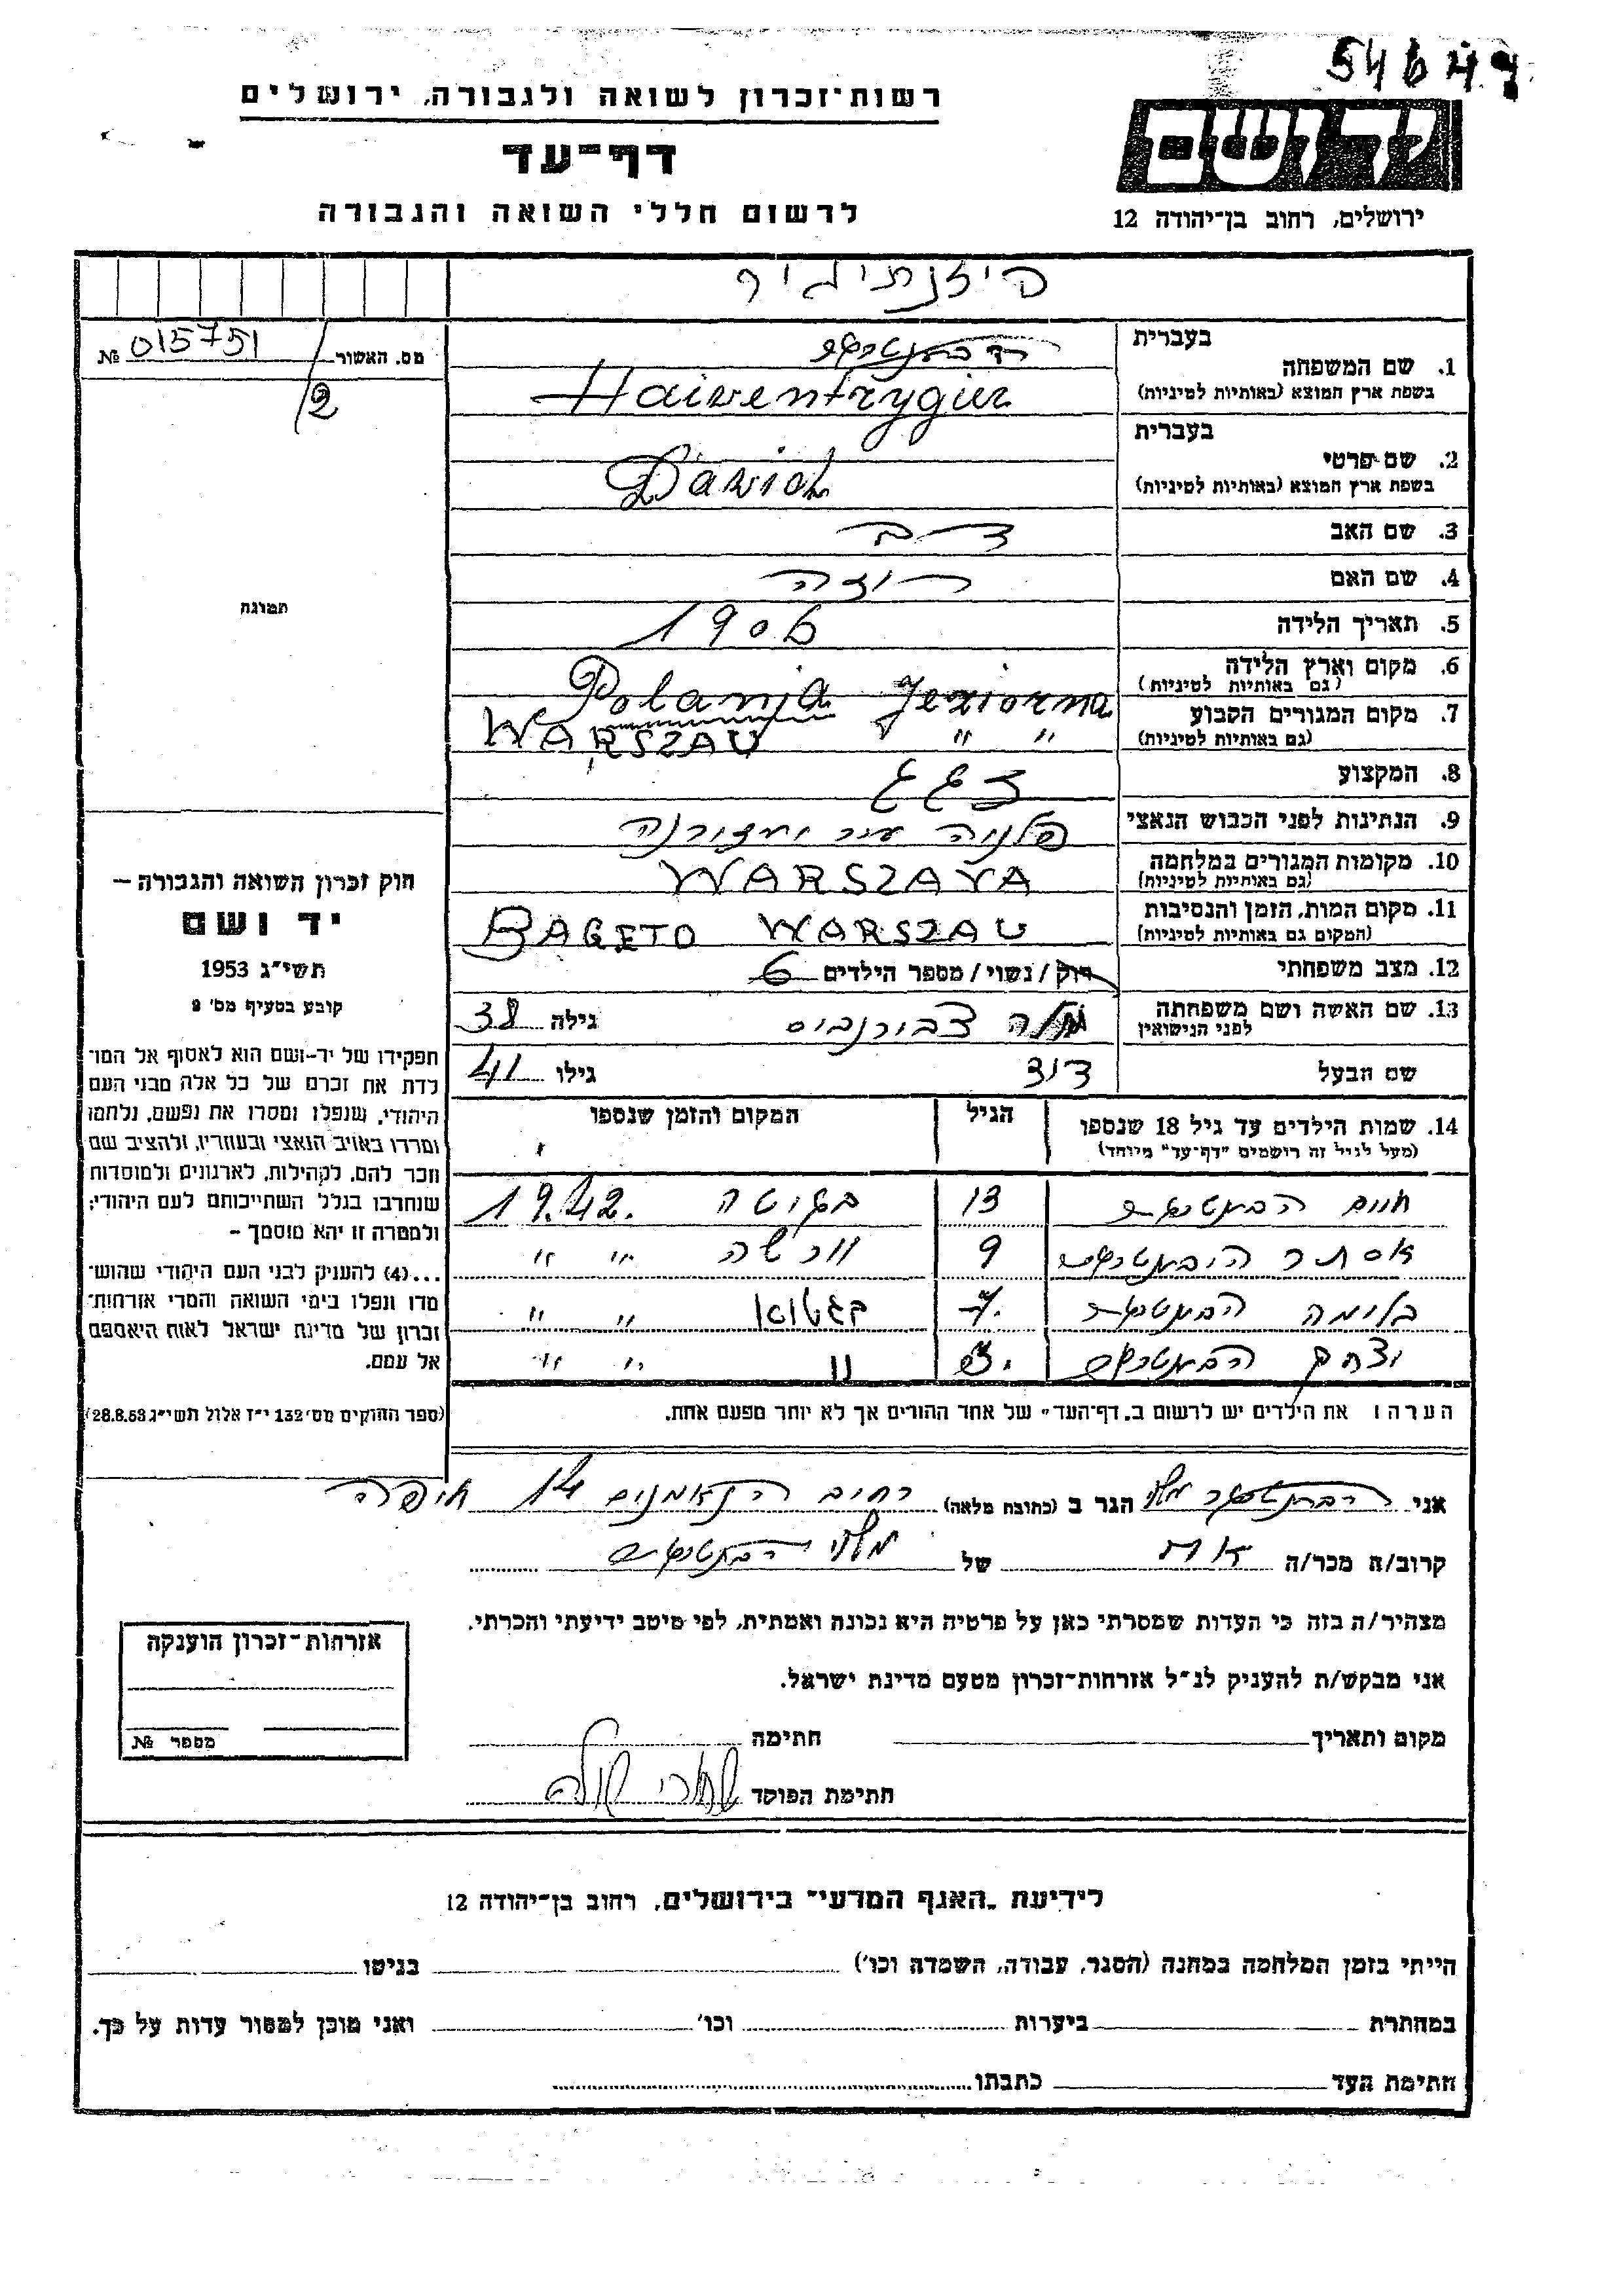 54644
רשות־זכרון לשואה ולגבורה, ירושלים
דף־עד
לרשום חללי השואה והגבורה
ידושם
ירושלים, רחוב בן־יהודה 12
מס. האשור 015751 №
2
בעברית
1. שם המשפחה
בשפת ארץ המוצא (באותיות לטיניות) Haiventrygier
בעברית
2. שם פרטי
בשפת ארץ המוצא (באותיות לטיניות) Dawid
3. שם האב דב
4. שם האם רוזה
5. תאריך הלידה 1906
6. מקום וארץ הלידה
(גם באותיות לטיניות) Polania Jeziorna
7. מקום המגורים הקבוע
(גם באותיות לטיניות) " " WARSZAU
8. המקצוע
9. הנתינות לפני הכבוש הנאצי
10. מקומות המגורים במלחמה
(גם באותיות לטיניות) WARSZAVA
11. מקום המות, הזמן והנסיבות
(המקום גם באותיות לטיניות) BAGETO WARSZAU
12. מצב משפחתי רוק / נשוי / מספר הילדים 6
13. שם האשה ושם משפחתה
לפני הנישואין גילה 38
שם הבעל דוד גילו 41
14. שמות הילדים עד גיל 18 שנספו
(מעל לגיל זה רושמים "דף־עד" מיוחד)
הגיל
המקום והזמן שנספו
חיים 13 בגיטה 1942
אסתר 9 ורשה " "
בלומה 7 בגטו " "
יצחק " " "
הערה: את הילדים יש לרשום ב"דף־העד" של אחד ההורים אך לא יותר מפעם אחת.
תמונה
חוק זכרון השואה והגבורה —
יד ושם
תשי״ג 1953
קובע בסעיף מס׳ 2
תפקידו של יד-ושם הוא לאסוף אל המו־
לדת את זכרם של כל אלה מבני העם
היהודי, שנפלו ומסרו את נפשם, נלחמו
ומרדו באויב הנאצי ובעוזריו, ולהציב שם
וזכר להם, לקהילות, לארגונים ולמוסדות
שנחרבו בגלל השתייכותם לעם היהודי;
ולמטרה זו יהא מוסמך —
...(4) להעניק לבני העם היהודי שהוש־
מדו ונפלו בימי השואה והמרי אזרחות־
זכרון של מדינת ישראל לאות היאספם
אל עמם.
(ספר החוקים מס׳ 132 י״ז אלול תשי״ג 28.8.53)
אני הגר ב (כתובת מלאה) רחוב הנאמנים 14 חיפה
קרוב/ה מכר/ה אח של
מצהיר/ה בזה כי העדות שמסרתי כאן על פרטיה היא נכונה ואמתית, לפי מיטב ידיעתי והכרתי.
אני מבקש/ת להעניק לנ״ל אזרחות־זכרון מטעם מדינת ישראל.
מקום ותאריך חתימה
חתימת הפוקד
אזרחות־זכרון הוענקה
מספר №
לידיעת "האגף המדעי" בירושלים, רחוב בן־יהודה 12
הייתי בזמן המלחמה במחנה (הסגר, עבודה, השמדה וכו׳) בגיטו
במחתרת ביערות וכו׳ ואני מוכן למסור עדות על כך.
חתימת העד כתבתו